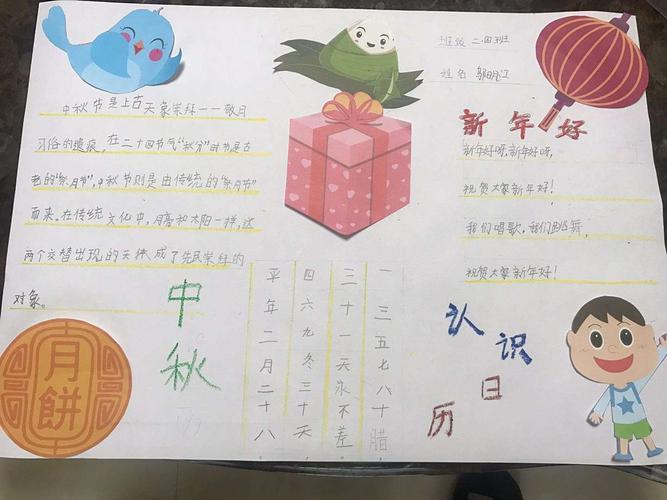 中秋节是上古天象崇拜——敬月
习俗的遗痕。在二十四节气“秋分”时节是古
老的“祭月节”,中秋节则是由传统的“祭月节”
而来。在传统文化中,月亮和太阳一样,这
两个交替出现的天体成了先民崇拜的
对象。
中秋
月餅
班级 二.四班
姓名
新年好
新年好呀,新年好呀,
祝贺大家新年好!
我们唱歌,我们跳舞,
祝贺大家新年好!
一三五七八十腊,
三十一天永不差,
四六九冬三十天,
平年二月二十八,
认识
日历